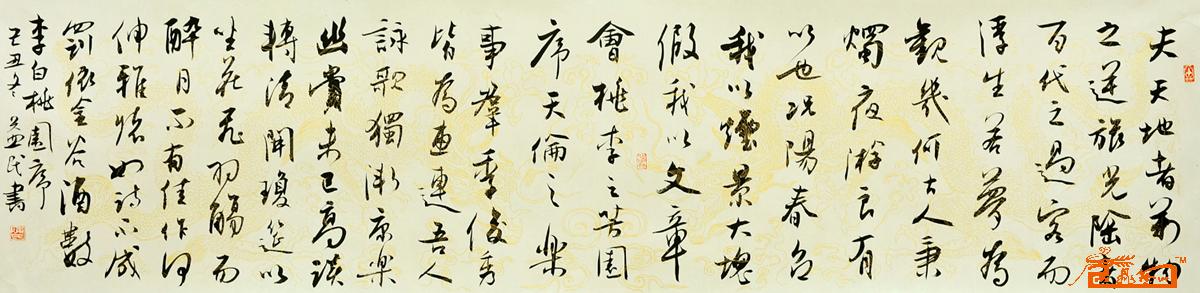 夫天地者萬物
之逆旅光陰者
百代之過客而
浮生若夢為
歡幾何古人秉
燭夜游良有
以也況陽春召
我以煙景大塊
假我以文章
會桃李之芳園
序天倫之樂
事羣季俊秀
皆為惠連吾人
詠歌獨慚康樂
幽賞未已高談
轉清開瓊筵以
坐花飛羽觴而
醉月不有佳作何
伸雅懷如詩不成
罰依金谷酒數
李白桃園序
己丑冬益民書